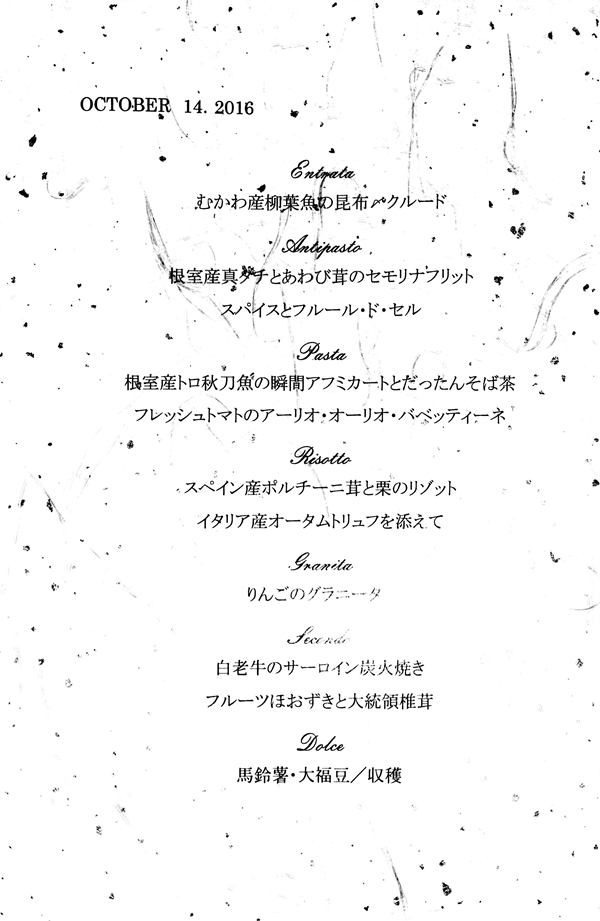 OCTOBER 14. 2016
Entrata
むかわ産柳葉魚の昆布〆クルード
Antipasto
根室産真ダチとあわび茸のセモリナフリット
スパイスとフルール・ド・セル
Pasta
根室産トロ秋刀魚の瞬間アフミカートとだったんそば茶
フレッシュトマトのアーリオ・オーリオ・バベッティーネ
Risotto
スペイン産ポルチーニ茸と栗のリゾット
イタリア産オータムトリュフを添えて
Granita
りんごのグラニータ
Secondo
白老牛のサーロイン炭火焼き
フルーツほおずきと大統領椎茸
Dolce
馬鈴薯・大福豆／収穫